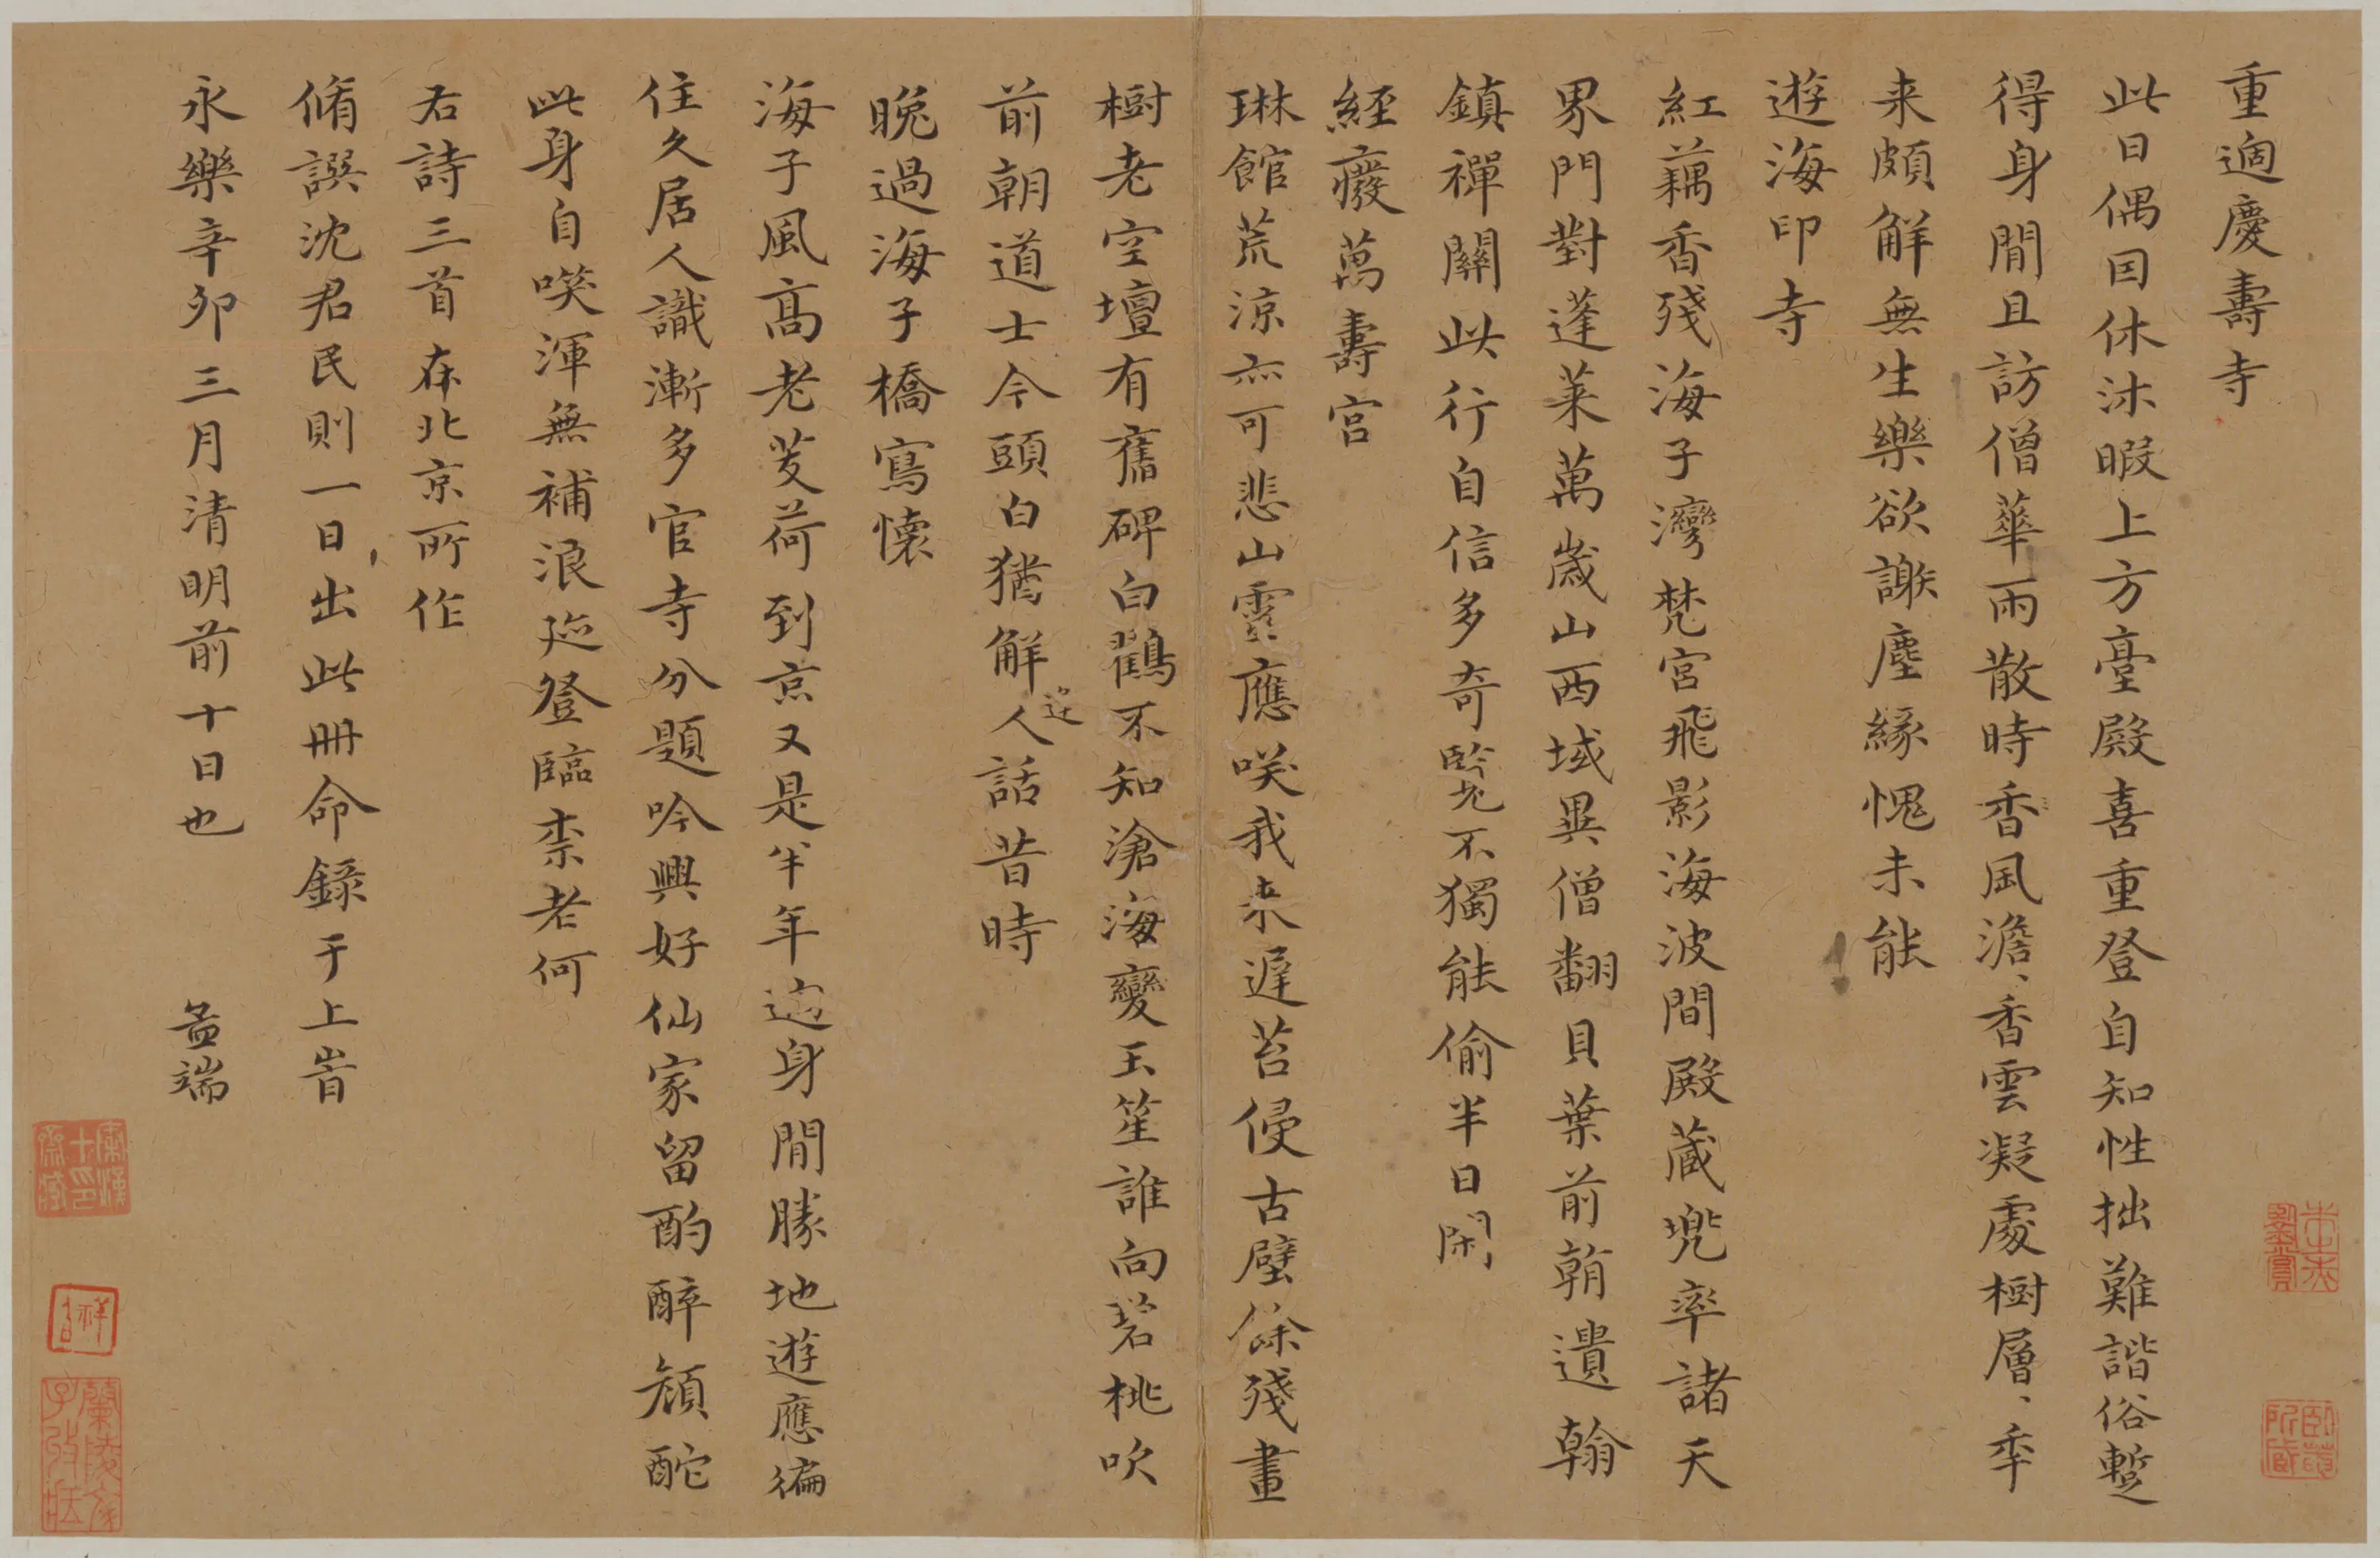 重過慶壽寺
此日偶因休沐暇上方臺殿喜重登自知性拙難諧俗蹔
得身閒且訪僧華雨散時香風澹、香雲凝處樹層、年
来頗解無生樂欲謝塵緣愧未能
遊海印寺
紅藕香殘海子灣梵宮飛影海波間殿藏兜率諸天
界門對蓬萊萬歲山西域異僧翻貝葉前朝遺翰
鎮禪關此行自信多奇覽不獨能偷半日閑
經廢萬壽宮
琳館荒涼亦可悲山靈應咲我來遲苔侵古壁餘殘畫
樹老空壇有舊碑白鶴不知滄海變玉笙誰向碧桃吹
前朝道士今頭白猶解人話昔時
迎
晚過海子橋寫懷
海子風高老芰荷到京又是半年過身閒勝地遊應徧
住久居人識漸多官寺分題吟興好仙家留酌醉顏酡
此身自咲渾無補浪跡登臨柰老何
右詩三首在北京所作
脩譔沈君民則一日出此冊命錄于上旹
永樂辛卯三月清明前十日也 孟端